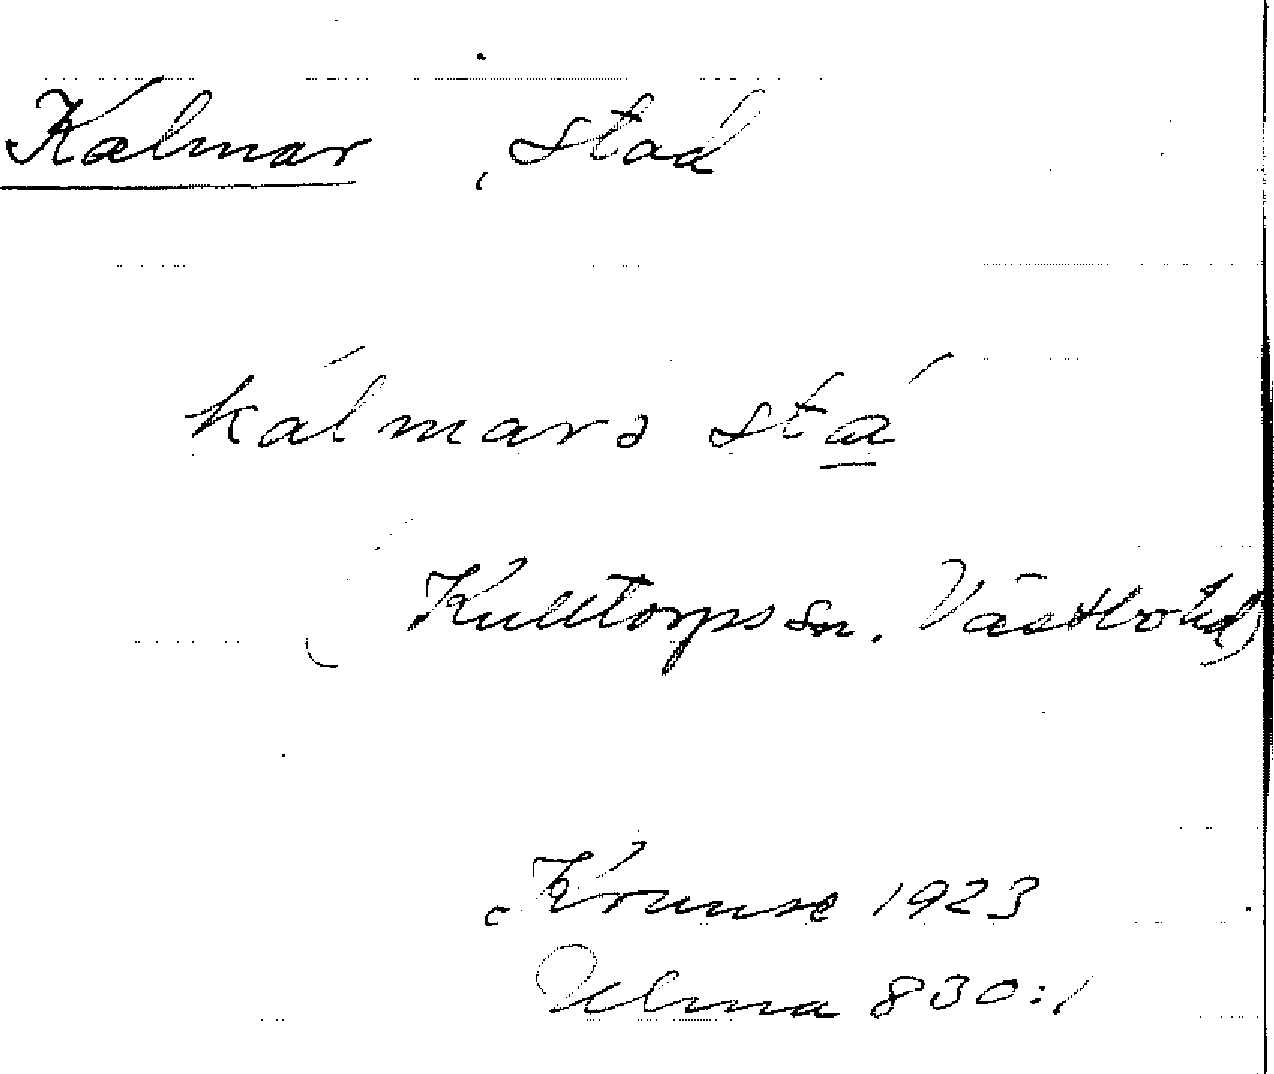 Kalmar, stad
kálmarə stá
(Kulltorps sn. Västbo hd)
Kruuse 1923
Ulma 830:1